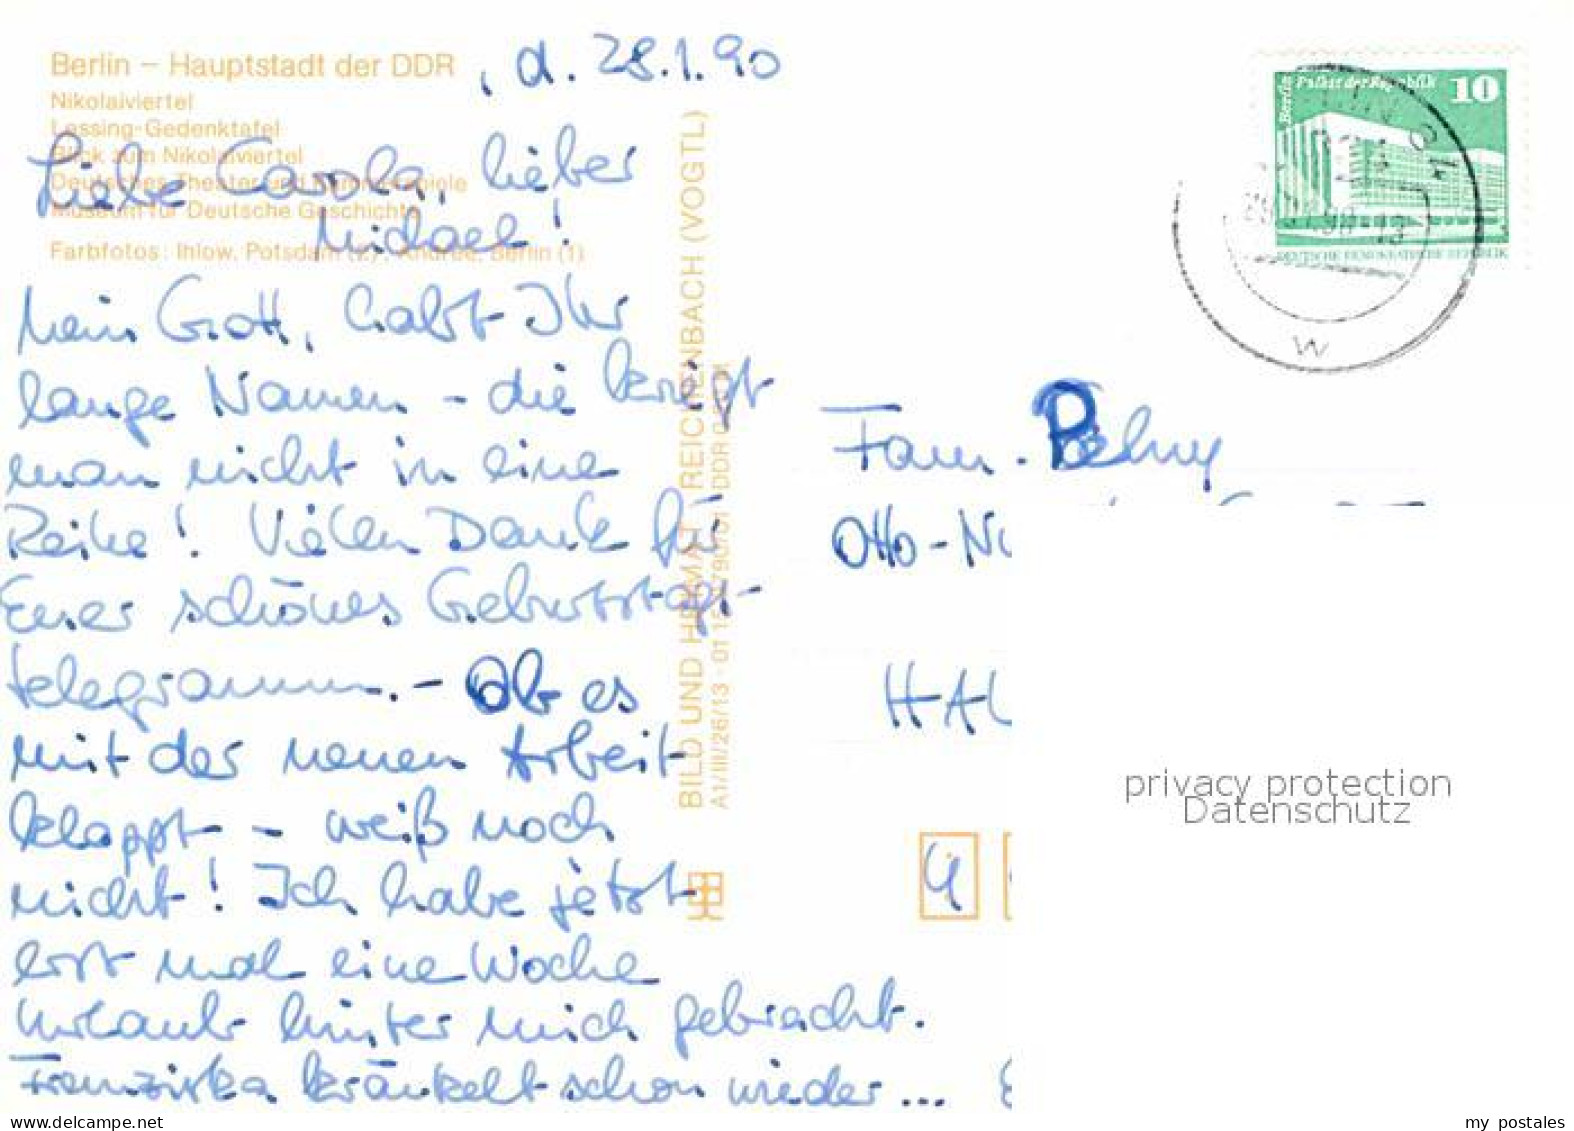 Berlin – Hauptstadt der DDR
, d. 28.1.90
Nikolaiviertel
Lessing-Gedenktafel
Blick zum Nikolaiviertel
Deutsches Theater und Kammerspiele
Museum für Deutsche Geschichte
Farbfotos: Ihlow, Potsdam (2), Andree, Berlin (1)
Liebe Carola, lieber
Michael!
Mein Gott, habt Ihr
lange Namen - die kreigt
man nicht in eine
Reihe! Vielen Dank für
Euer schönes Geburtstags-
telegramm. - Ob es
mit der neuen Arbeit
klappt - weiß noch
nicht! Ich habe jetzt
erst mal eine Woche
Urlaub hinter mich gebracht.
Franziska kränkelt schon wieder ...
BILD UND HEIMAT REICHENBACH (VOGTL)
A1/III/26/13 · 01 DDR
Berlin Palast der Republik 10
DEUTSCHE DEMOKRATISCHE REPUBLIK
W
Fam.
Otto-Nu
HAL
4
privacy protection
Datenschutz
delcampe.net
my postales